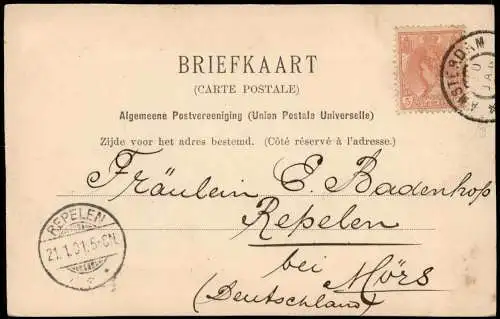 BRIEFKAART
(CARTE POSTALE)
Algemeene Postvereeniging (Union Postale Universelle)
Zijde voor het adres bestemd. (Côté réservé à l'adresse.)
AMSTERDAM
JAN
Fräulein E. Badenhop
Repelen
bei Mörs
(Deutschland)
REPELEN
21.1.01.5-6N.